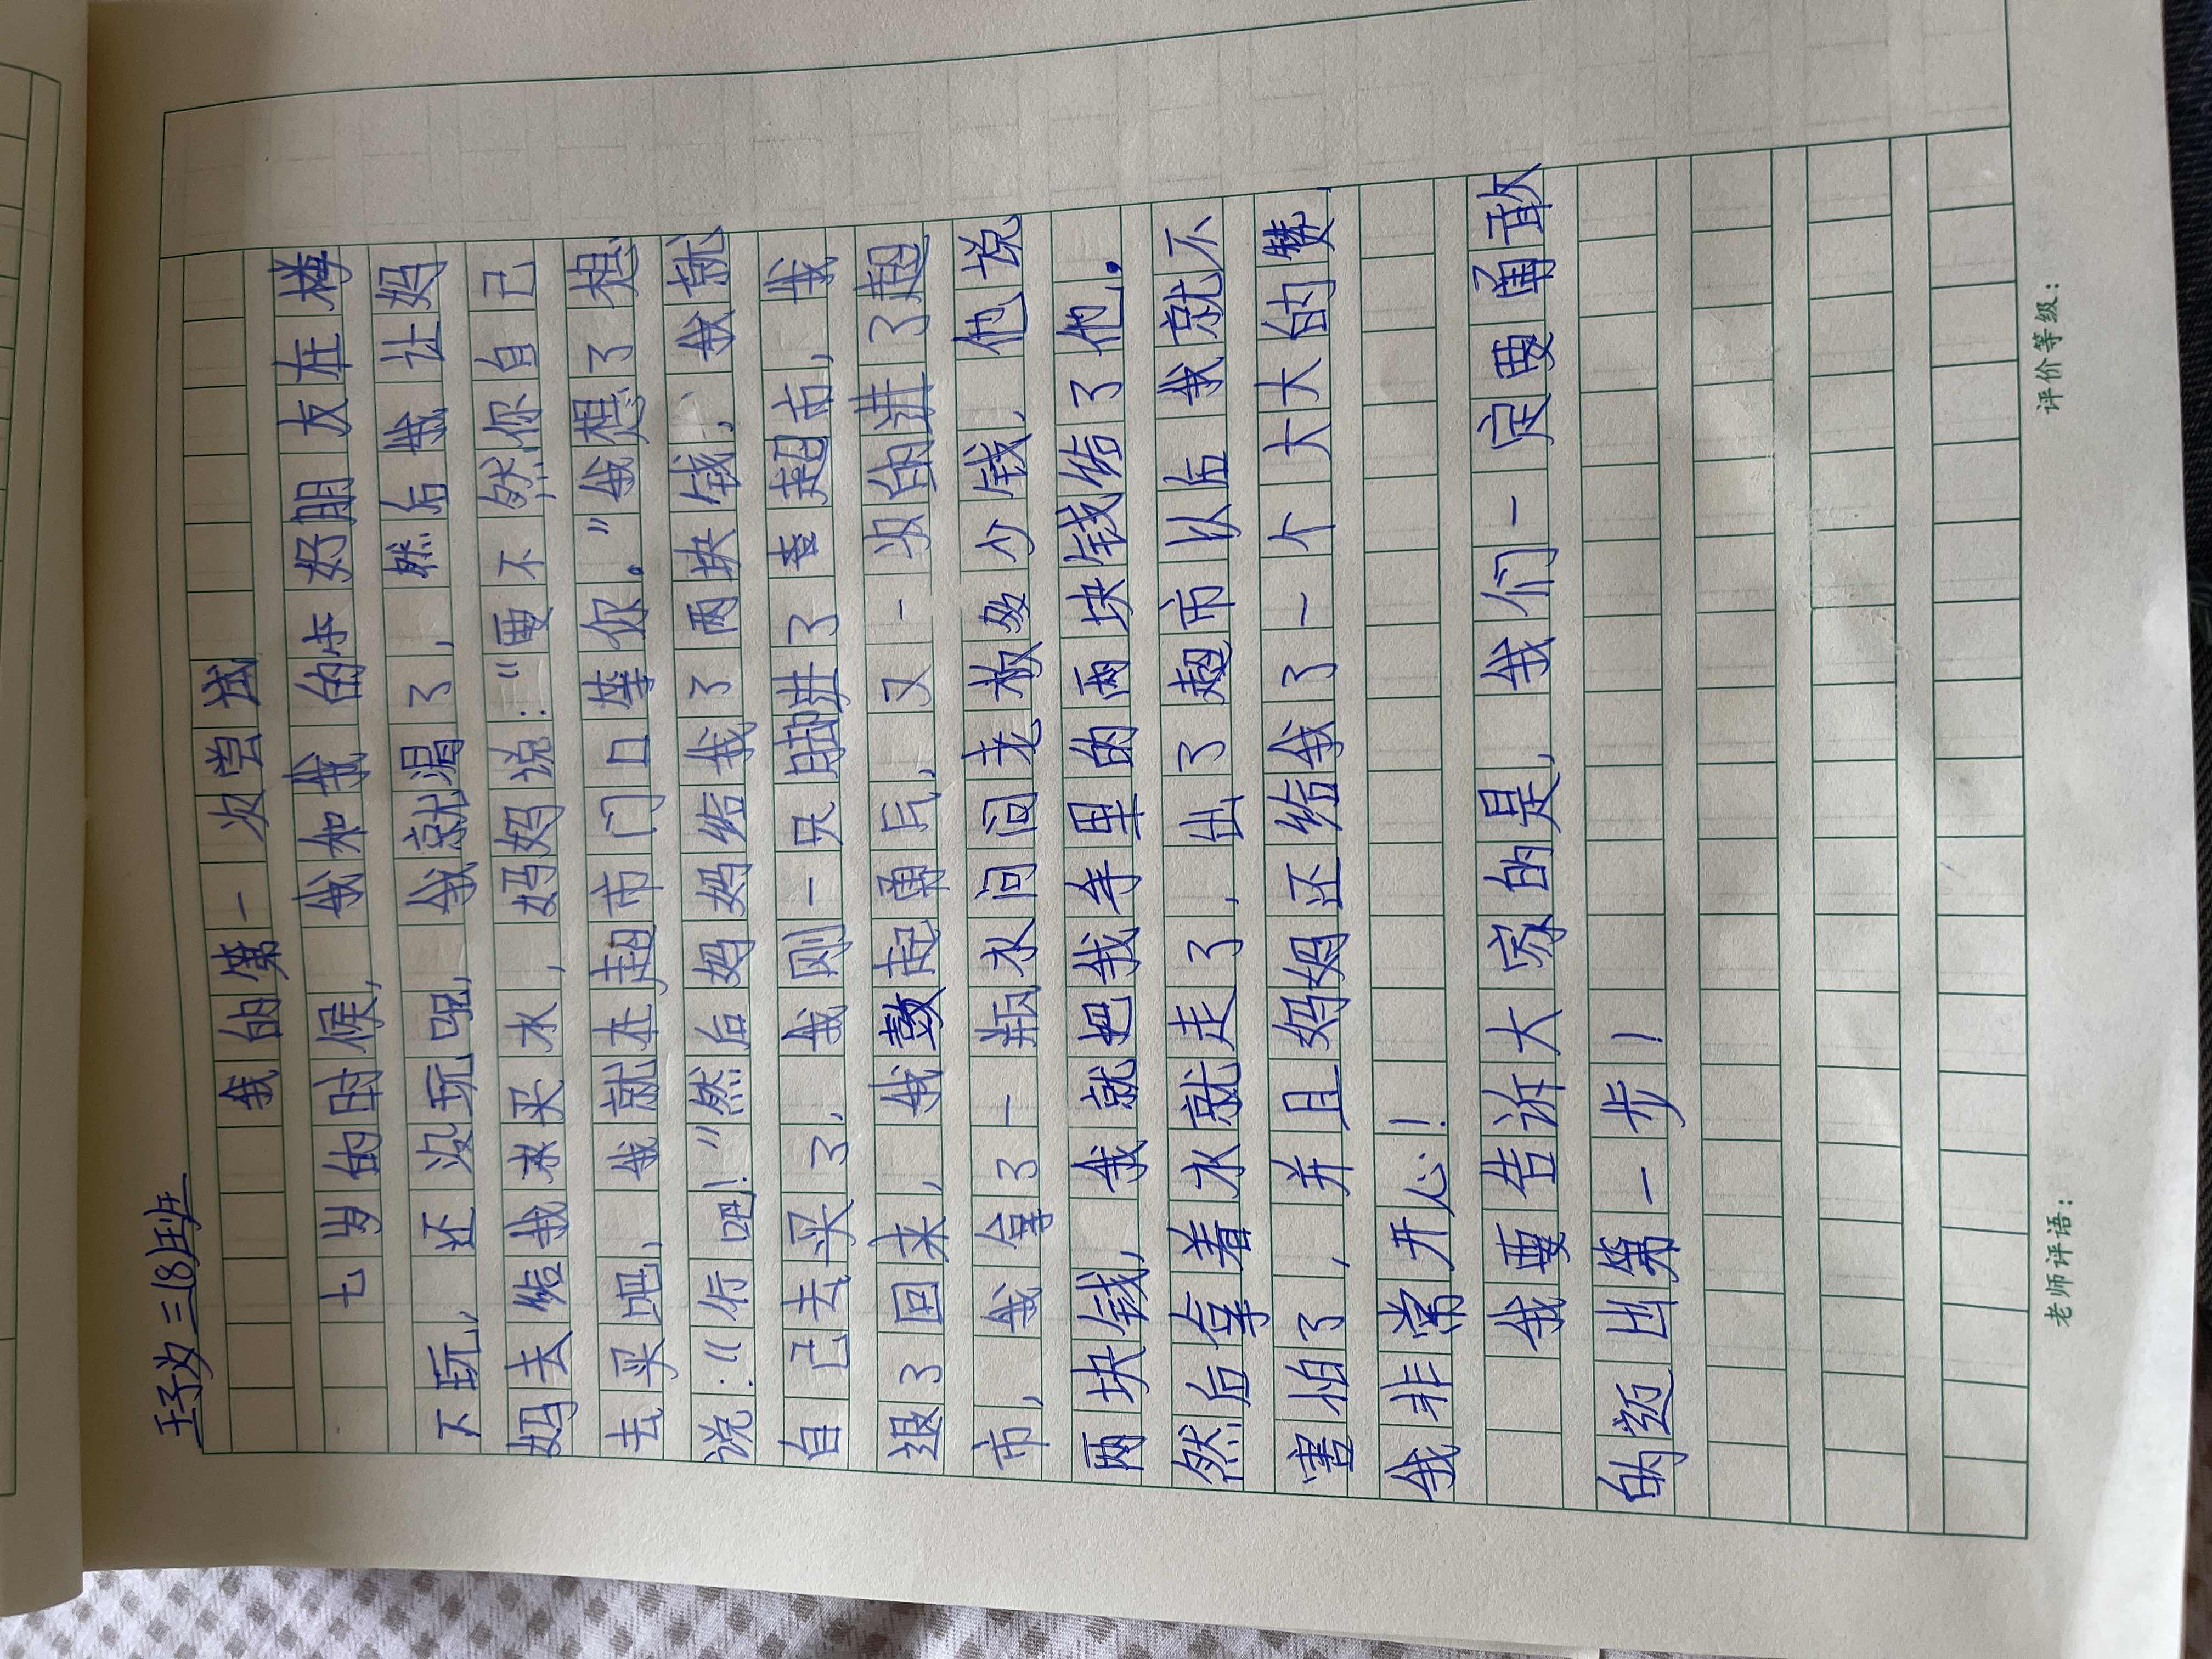 王予为 三(8)班
我的第一次尝试
七岁的时候，我和我的好朋友在楼
下玩，还没玩呢，我就渴了，然后我让妈
妈去给我买水，妈妈说：“要不然你自己
去买吧，我就在超市门口等你。”我想了想
说：“行吧！”然后妈妈给我了两块钱，我就
自己去买了，我刚一只脚进了查超市，我
退了回来，我鼓起勇气，又一次的进了超
市，我拿了一瓶水问问老板多少钱，他说
两块钱，我就把我手里的两块钱给了他。
然后拿着水就走了，出了超市以后我就不
害怕了，并且妈妈还给我了一个大大的赞，
我非常开心！
我要告诉大家的是，我们一定要勇敢
的迈出第一步！
老师评语：
评价等级：